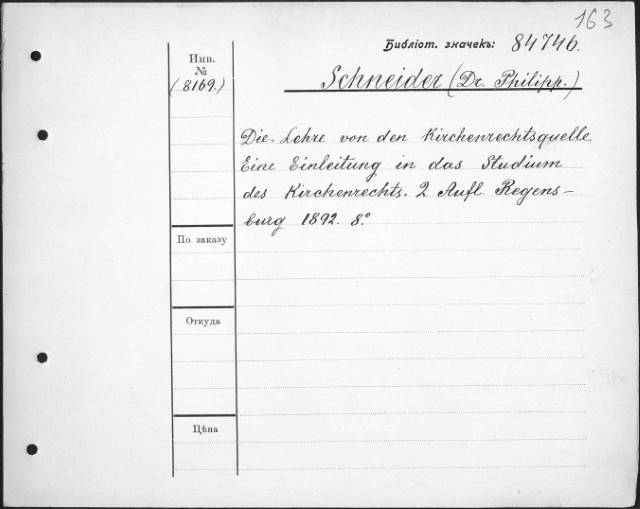 163
Библіот. значекъ: 84746.
Инв.
№
(8169.)
Schneider (Dr. Philipp.)
Die Lehre von den Kirchenrechtsquelle
Eine Einleitung in das Studium
des Kirchenrechts. 2 Aufl. Regens-
burg 1892. 8.°
По заказу
Откуда
Цѣна